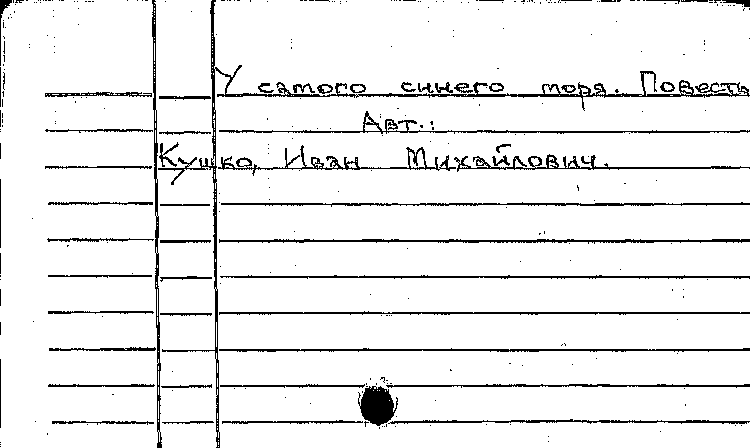 У самого синего моря. Повесть
Авт.:
Кушко, Иван Михайлович.